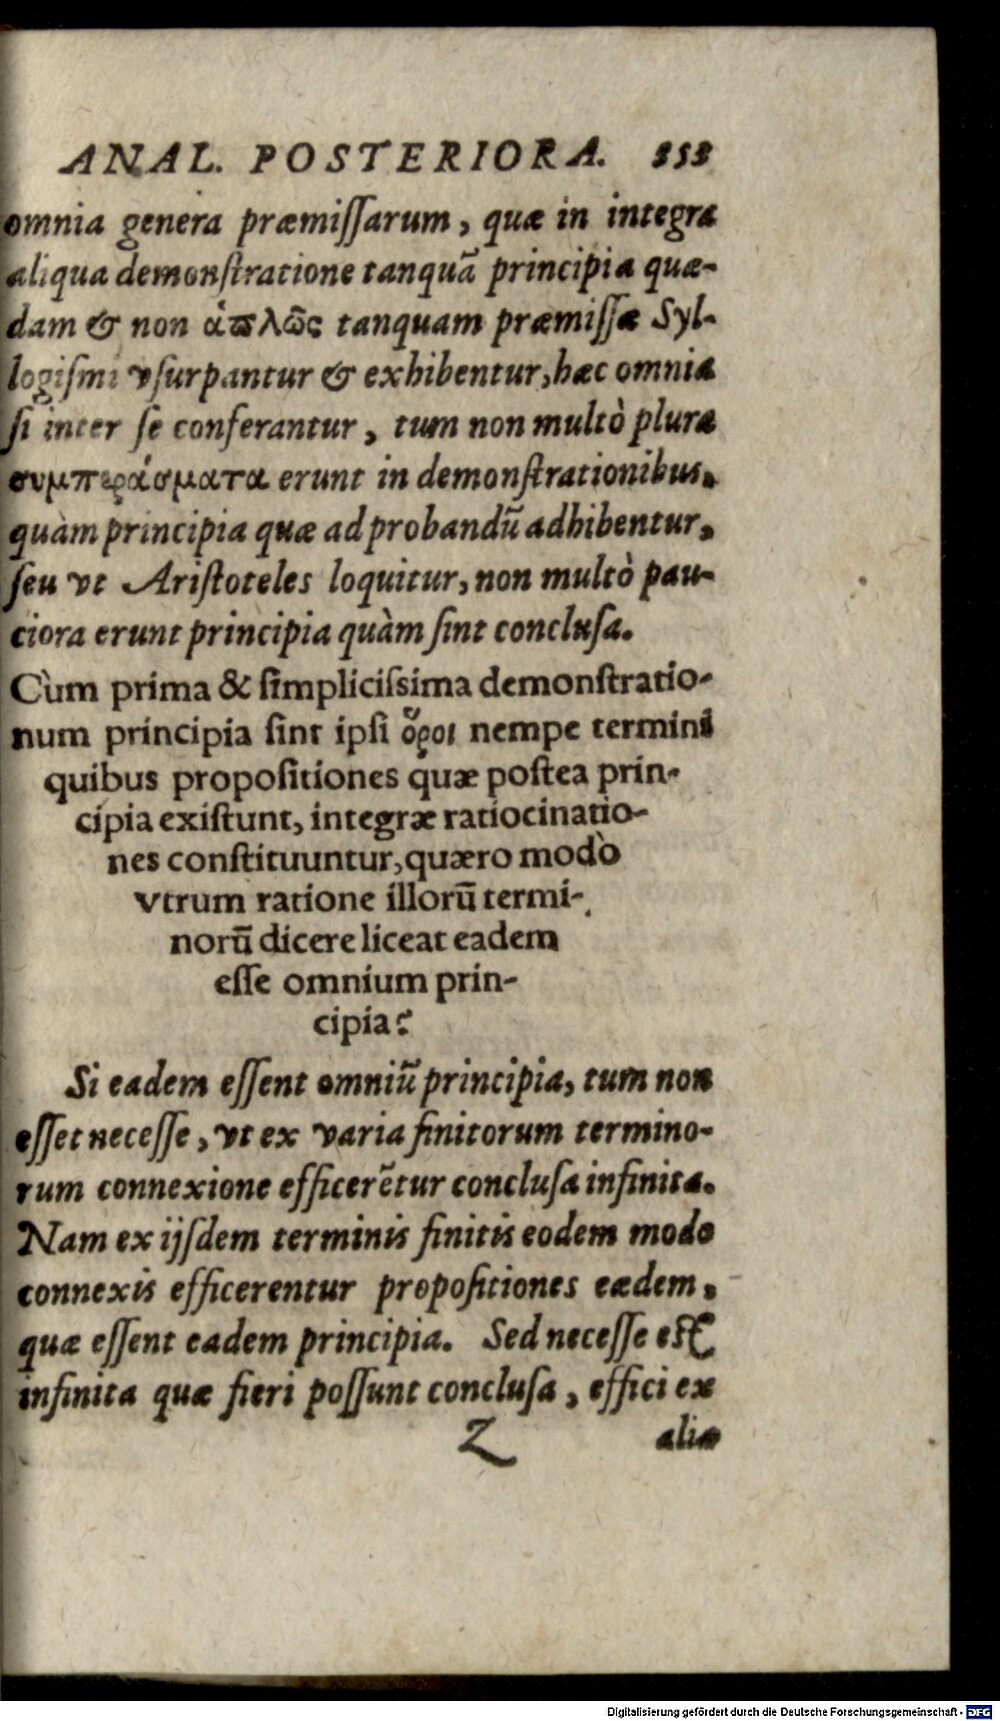 ANAL. POSTERIORA. 353
omnia genera præmiſſarum, quæ in integra
aliqua demonſtratione tanquã principia quæ-
dam & non ἁπλῶς tanquam præmiſſæ Syl-
logiſmi vſurpantur & exhibentur, hæc omnia
ſi inter ſe conferantur, tum non multò plura
συμπεράσματα erunt in demonſtrationibus,
quàm principia quæ ad probandũ adhibentur,
ſeu vt Ariſtoteles loquitur, non multò pau-
ciora erunt principia quàm ſint concluſa.
Cùm prima & ſimpliciſsima demonſtratio-
num principia ſint ipſi ὅροι nempe termini
quibus propoſitiones quæ poſtea prin-
cipia exiſtunt, integræ ratiocinatio-
nes conſtituuntur, quæro modò
vtrum ratione illorũ termi-
norũ dicere liceat eadem
eſſe omnium prin-
cipia?
Si eadem eſſent omniũ principia, tum non
eſſet neceſſe, vt ex varia finitorum termino-
rum connexione efficerẽtur concluſa infinita.
Nam ex ijſdem terminis finitis eodem modo
connexis efficerentur propoſitiones eædem,
quæ eſſent eadem principia. Sed neceſſe eſt
infinita quæ fieri poſſunt concluſa, effici ex
Z aliæ
Digitalisierung gefördert durch die Deutsche Forschungsgemeinschaft - DFG